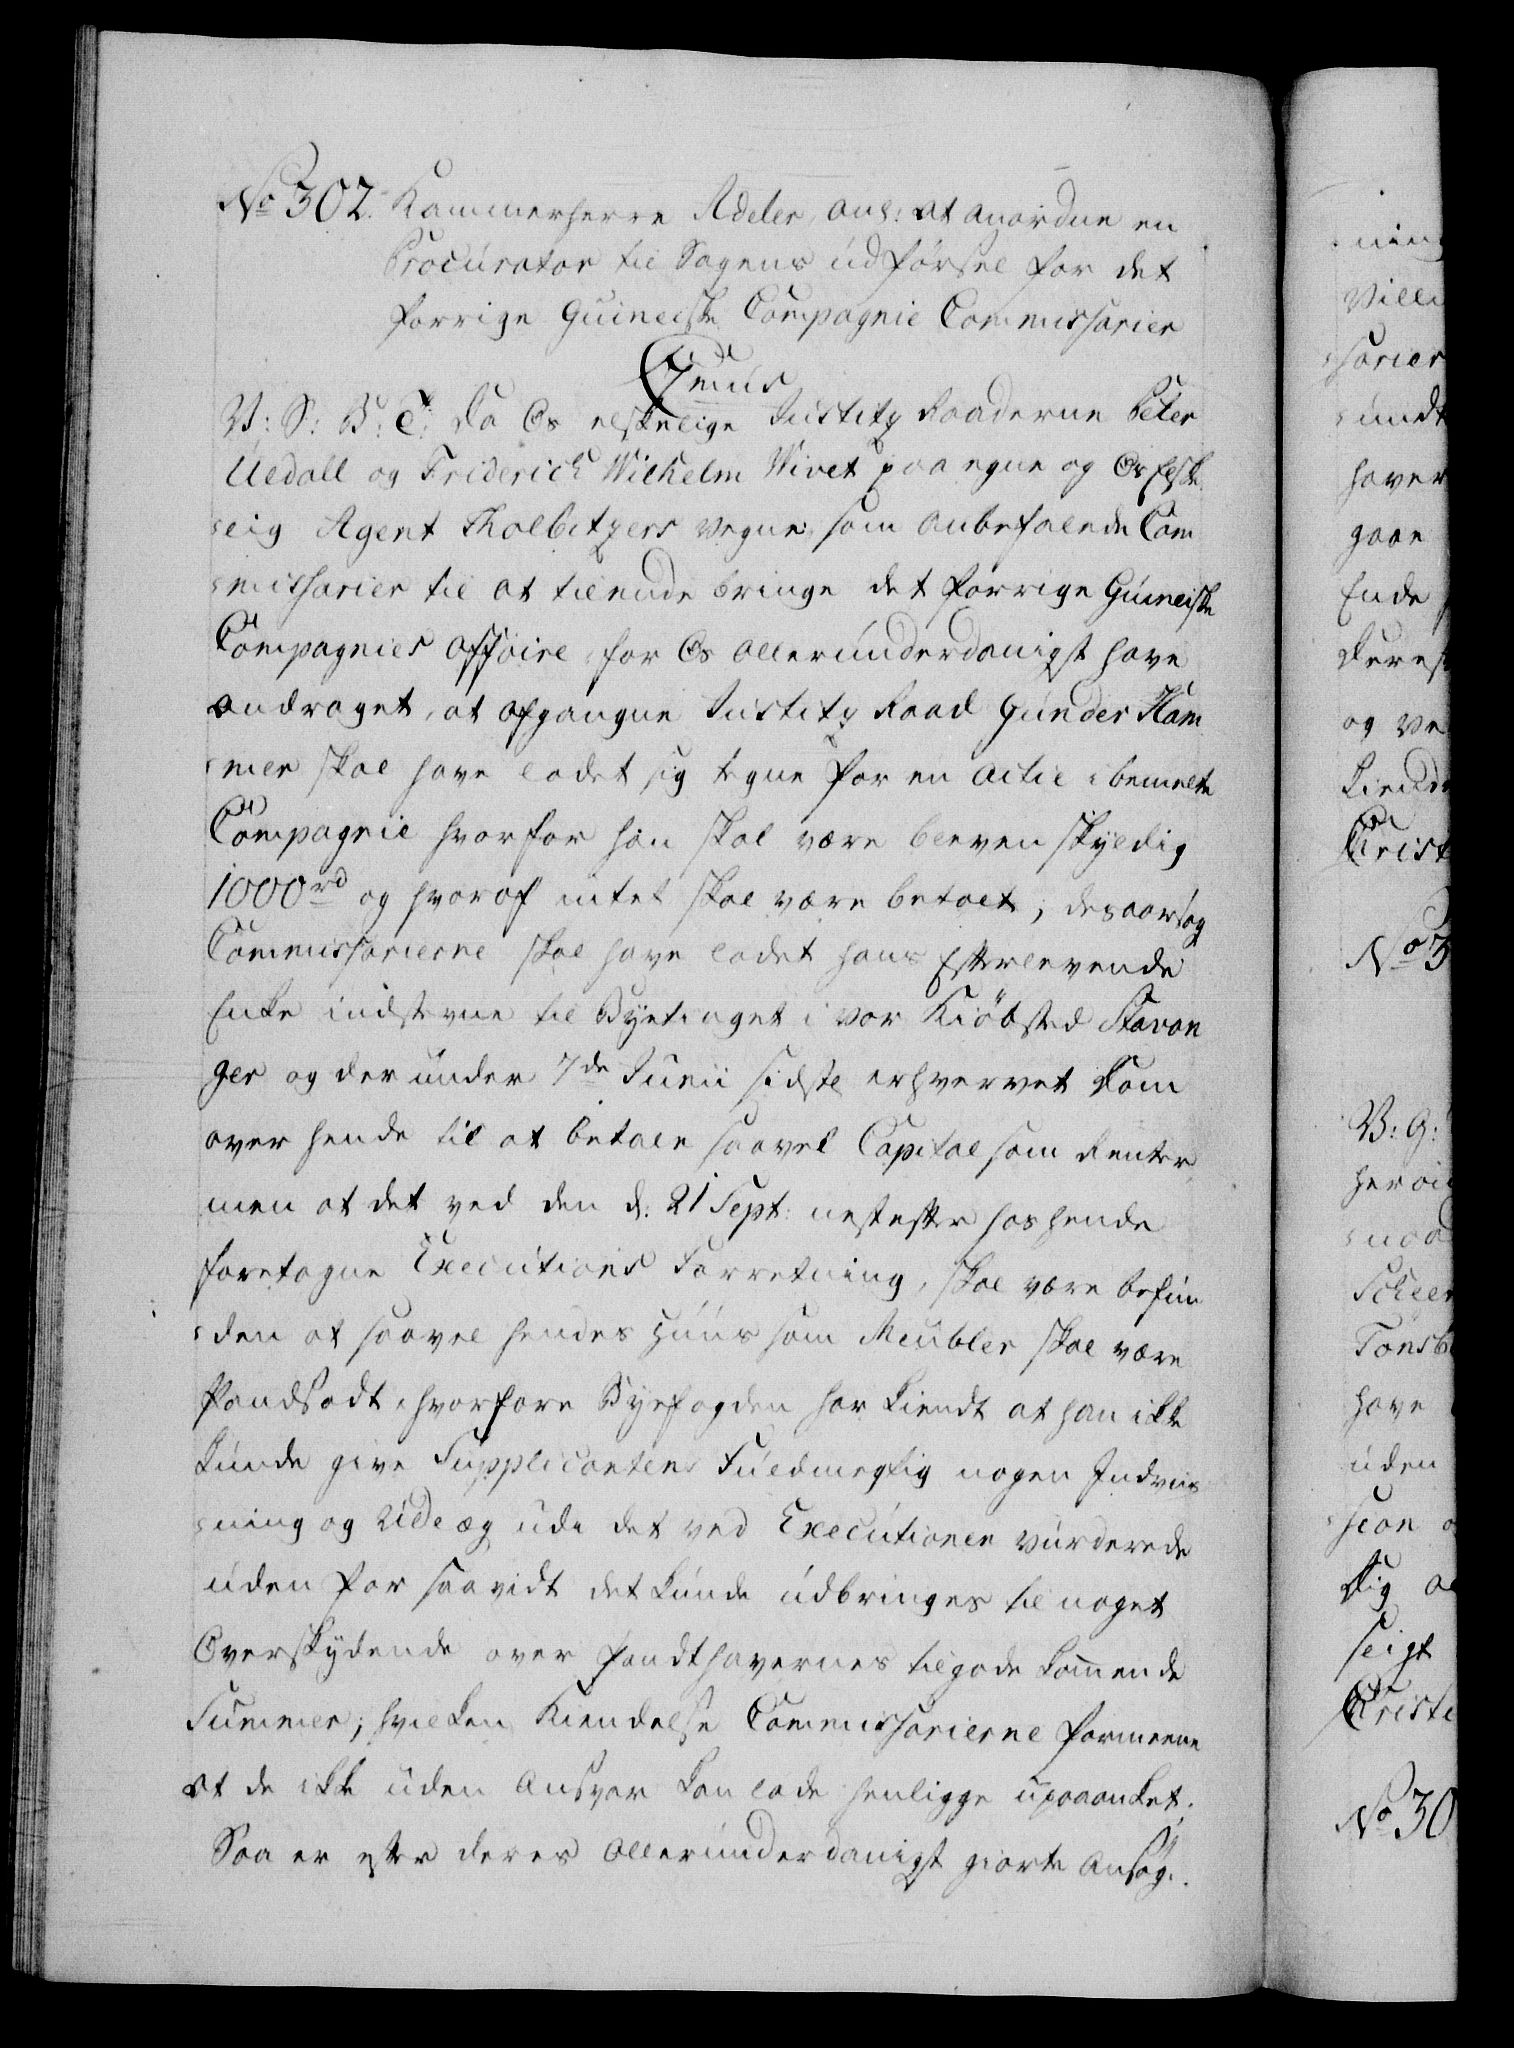 No 302. Kammerherre Adeler, anl: at anordne en
Procurator til Sagens udførsel for det
forrige Guineiske Compagnie Commissarier
C 7mus
V: S: B: T: Da Os elskelige Justitz Raaderne Peter
Uedall og Friderich Wilhelm Wivet paa egne og Os Elske
lig Agent Tholbitzers vegne, som anbefalede Com
missarier til at tilendebringe det forrige Guineiske
Compagnies Affaire, for Os allerunderdanigst have
andraget, at afgangne Justitz Raad Gunder Ham
mer skal have ladet sig tegne for en Actie i bemelte
Compagnie hvorfor han skal være bleven skyldig
1000rd og hvoraf intet skal være betalt, desaarsag
Commissarierne skal have ladet hans Efterlevende
Enke indstevne til Byetinget i vor Kiöbsted Stavan
ger og der under 7de Junii sidste erhvervet Dom
over hende til at betale saavel Capital som Renter
men at det ved den d. 21 Sept: nestefter hos hende
foretagne Executions Forretning, skal være befun
den at saavel hendes Huus som Meubler skal være
Pandsadt, hvorfore Byefogden har kiendt at han ikke
kunde give Supplicantens Fuldmegtig nogen Indviis
ning og Udlæg udi det ved Executionen vurderede
uden for saavidt det kunde udbringes til noget
Overskydende over Pandthavernes tilgodekommende
Summer; hvilken Kiendelse Commissarierne formeene
at de ikke uden Ansvar kan lade henligge upaaanket.
Saa er efter deres allerunderdanigst giorte Ansøg.
ning
Ville
sarier
undt
haver
gaae
Ende
Deres
og ve
Liendt
Christ
No 3
B: G:
herai
naa
Scheer
Tönsb
have
uden
sion
Dig
seigt
Christi
No 30